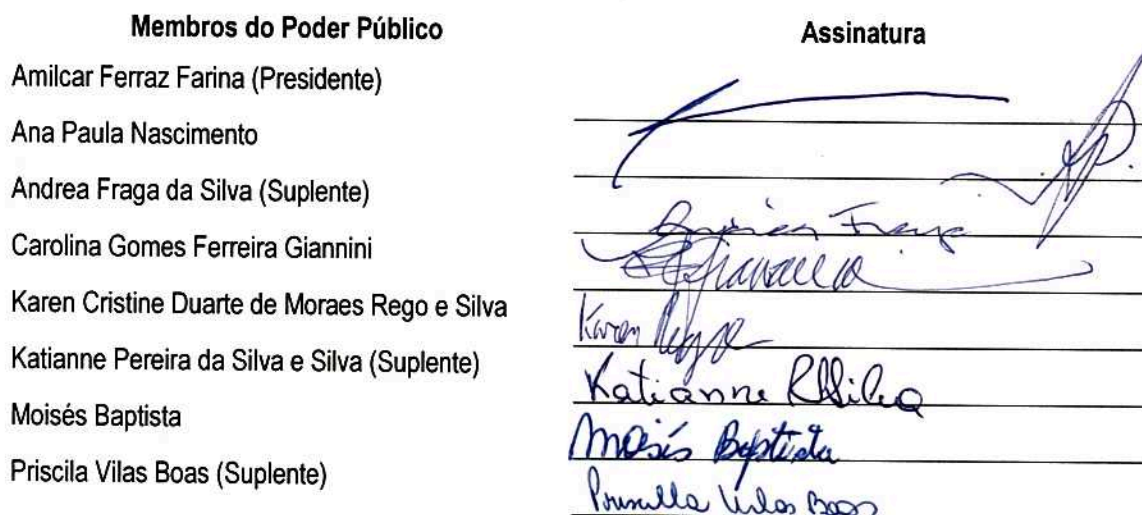 Membros do Poder Público
Assinatura
Amilcar Ferraz Farina (Presidente)
Ana Paula Nascimento
Andrea Fraga da Silva (Suplente)
Carolina Gomes Ferreira Giannini
Karen Cristine Duarte de Moraes Rego e Silva
Katianne Pereira da Silva e Silva (Suplente)
Moisés Baptista
Priscila Vilas Boas (Suplente)
Karen Rego
Katianne
Moisés Baptista
Priscilla Vilas Boas